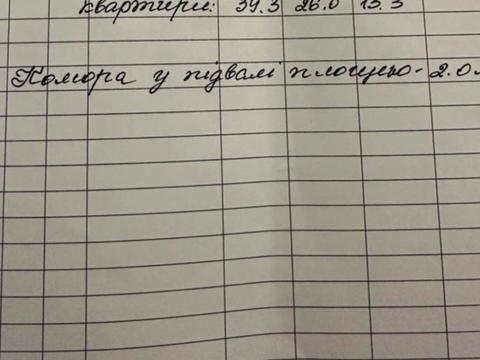 квартири: 39.3 26.0 13.3
Комора у підвалі площею - 2.0м